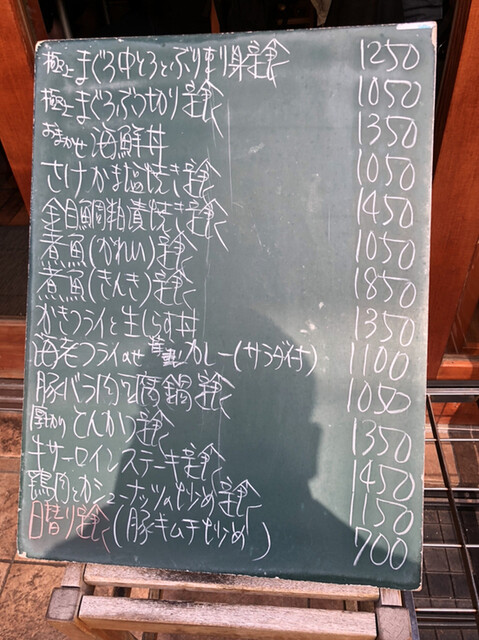 極上まぐろ中とろとぶり刺身定食 1250
極上まぐろぶつ切り定食 1050
おまかせ海鮮丼 1350
さけかま塩焼き定食 1050
金目鯛粕漬焼き定食 1450
煮魚(かれい)定食 1050
煮魚(きんき)定食 1850
かきフライと生しらす丼 1350
海老フライのせ カレー(サラダ付) 1100
豚バラ肉豆腐鍋定食 1050
厚切りとんかつ定食 1350
牛サーロインステーキ定食 1450
鶏肉とカシューナッツの炒め定食 1150
日替り定食(豚キムチ炒め) 700